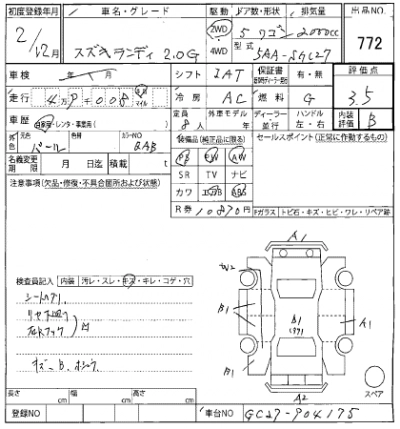 初度登録年月 車名・グレード 駆動 ドア数・形状 排気量 出品NO
2/12月 スズキランディ 2.0G 2WD 4WD 5 ワゴン 2000cc 772
型式 5AA-SGC27
車検 年 月 シフト IAT 保証書 有・無 評価点
走行 マイル 冷房 AC 燃料 G 3.5
車歴 自家用・レンタ・事業用( ) 定員 8人 外車モデル ディーラー 並行 ハンドル 左・右 内装評価 B
色 パール 色替 カラーNO QAB 装備品(純正品に限る) セールスポイント(正常に作動するもの)
名義変更期限 月 日迄 積載 t PS PW AW
注意事項(欠品・修復・不具合箇所および状態) SR TV ナビ
カワ エアB ABS
R券 10870円 Fガラス トビ石・キズ・ヒビ・ワレ・リペア跡
A1
W2
検査員記入 内装 汚レ・スレ・キズ・キレ・コゲ・穴
B1 B1 A1
B1
スペア
A2
長さ cm 幅 cm 高さ cm
登録NO 車台NO GC27-904175